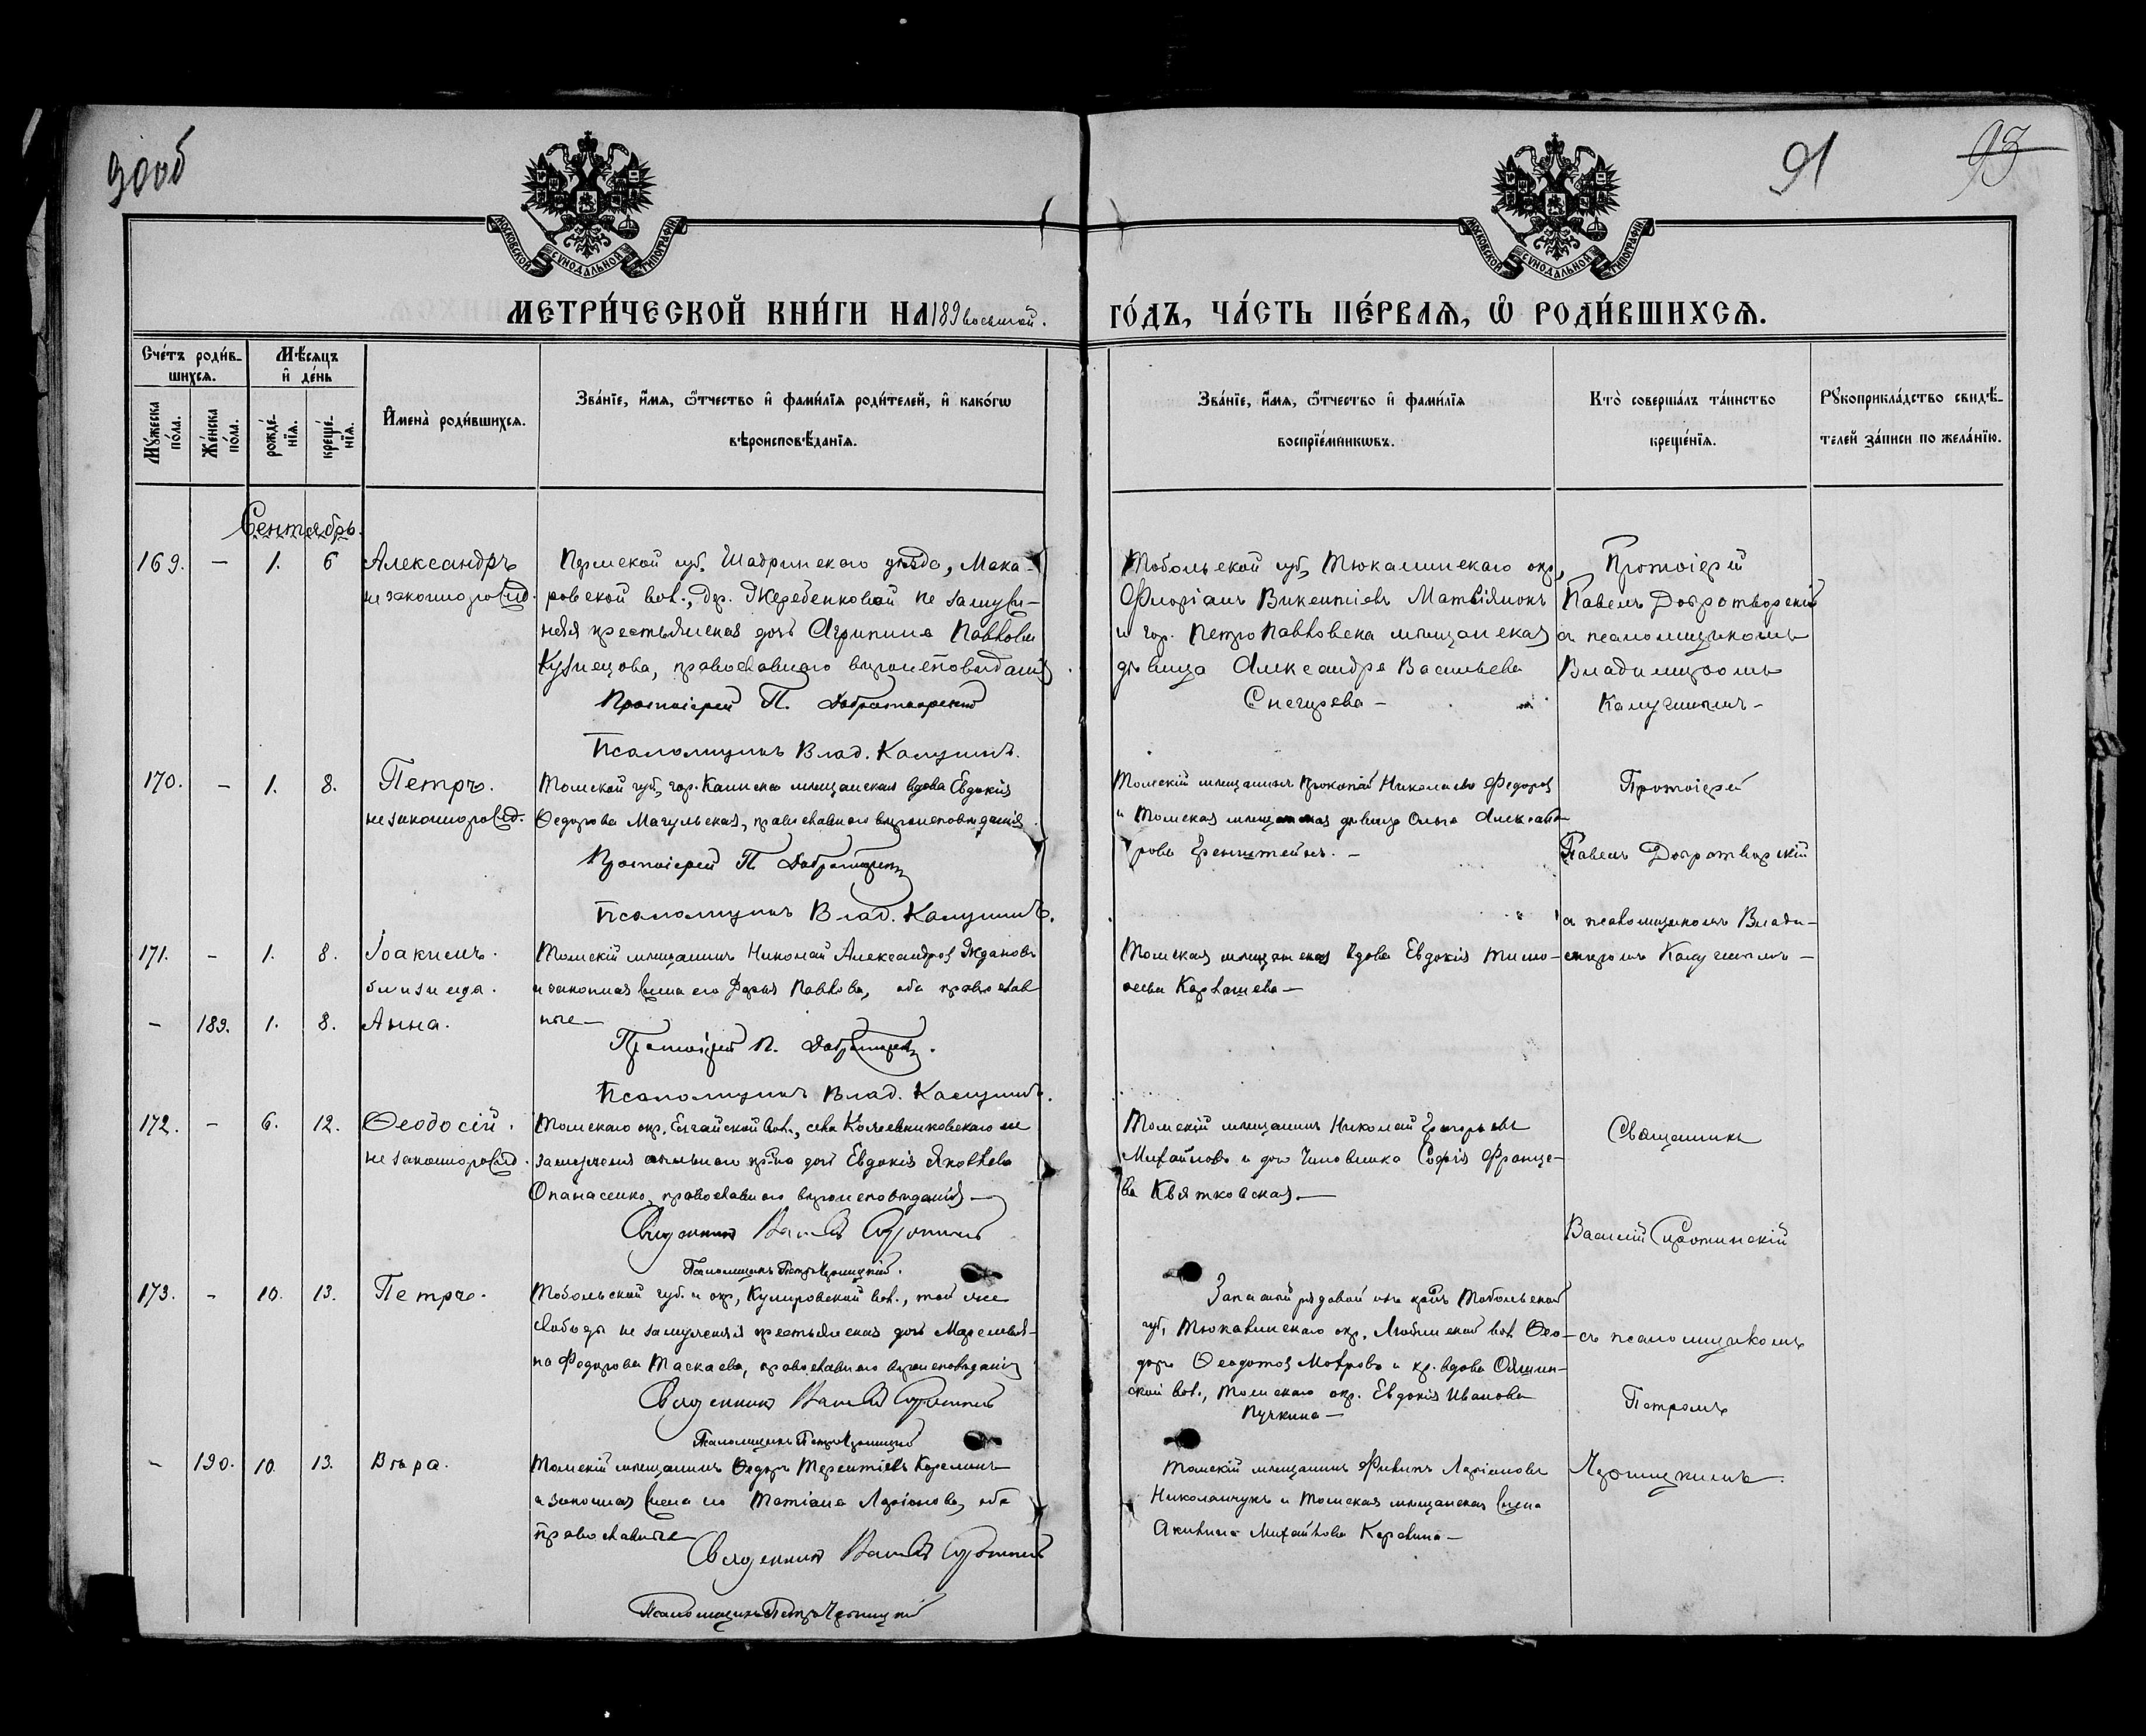 90об
91
93
МОСКОВСКОЙ СУНОДАЛЬНОЙ ТИПОГРАФІИ
МОСКОВСКОЙ СУНОДАЛЬНОЙ ТИПОГРАФІИ
МЕТРИ́ЧЕСКОЙ КНИ́ГИ НА 189восьмой.
ГО́ДЪ, ЧА́СТЬ ПЕ́РВАЯ, Ѡ РОДИ́ВШИХСЯ.
Сче́тъ роди́в-
шихся.
Мѣ́сяцъ
и де́нь
Му́жеска
по́ла.
Же́нска
по́ла.
рожде́-
нїя.
креще́-
нїя.
Имена̀ роди́вшихся.
Зва́нїе, и́мя, ѻ́тчество и фами́лїя роди́телей, и како́гѡ
вѣроисповѣ́данїя.
Зва́нїе, и́мя, ѻ́тчество и фами́лїя
воспрїе́мникѡвъ.
Кто̀ соверша́лъ та́инство
креще́нїя.
Рукоприкла́дство свидѣ́-
телей за́писи по жела́нїю.
Сентябрь.
169. – 1. 6 Александръ
незаконорожд.
Пермской губ. Шадринскаго уѣзда, Мака-
ровской вол., дер. Жеребенковой незамуж-
няя крестьянская дочь Агрипина Павлова
Кузнецова, православнаго вѣроисповѣданія
Протоіерей П. Добротворскій
Псаломщикъ Влад. Калугинъ.
Тобольской губ, Тюкалинскаго окр,
Флоріанъ Викентіевъ Матвіянокъ
и гор. Петропавловска мѣщанская
дѣвица Александра Васильева
Снегирева –
Протоіерей
Павелъ Добротворскій
съ псаломщикомъ
Владимиромъ
Калугинымъ –
170. – 1. 8. Петръ.
незаконорожд.
Томской губ, гор. Каинска мѣщанская вдова Евдокія
Федорова Магульская, православнаго вѣроисповѣданія.
Протоіерей П. Добротворскій
Псаломщикъ Влад. Калугинъ.
Томскій мѣщанинъ Прокопій Николаевъ Федоров
и Томская мѣщанская дѣвица Ольга Александ-
рова Еренштейнъ. –
Протоіерей
Павелъ Добротворскій
съ псаломщикомъ Влади-
миромъ Калугинымъ –
171. – 1. 8. Іоакимъ.
близнеца.
– 189. 1. 8. Анна.
Томскій мѣщанинъ Николай Александров Ждановъ
и законная жена его Дарья Павлова, оба православ
ные –
Протоіерей П. Добротворскій.
Псаломщикъ Влад. Калугинъ.
Томская мѣщанская вдова Евдокія Тимо-
феева Карташева –
172. – 6. 12. Феодосій.
незаконорожд.
Томскаго окр. Елгайской вол., села
незамужняя дочь Евдокія Яковлева
Опанасенко, православнаго вѣроисповѣданія –
Священникъ Василій Сиротинскій
Псаломщикъ Петръ
Томскій мѣщанинъ Николай Григорьевъ
Михайловъ и дочь Чиновника Софія Франце-
ва Квятковская. –
Священникъ
Василій Сиротинскій
173. – 10. 13. Петръ.
Тобольской губ. и окр, Кугаровской вол., той же
слободы не замужняя крестьянская дочь Маремья-
на Федорова Таскаева, православнаго вѣроисповѣданія
Священникъ Василій Сиротинскій
Псаломщикъ Петръ
Запасный рядовой изъ крест Тобольской
губ, Тюкалинскаго окр. Любинской вол. Фео-
доръ Феодотов Мохровъ и кр. вдова Ояшин-
ской вол., Томскаго окр. Евдокія Иванова
Пучкина –
съ псаломщикомъ
Петромъ
– 190. 10. 13. Вѣра.
Томскій мѣщанинъ Федоръ Терентіевъ Карелинъ
и законная жена его Татіана Ларіонова, оба
православные –
Священникъ Василій Сиротинскій
Псаломщикъ Петръ
Томскій мѣщанинъ Филипъ Ларіоновъ
Николайчукъ и Томская мѣщанская жена
Акилина Михайлова Карелина –